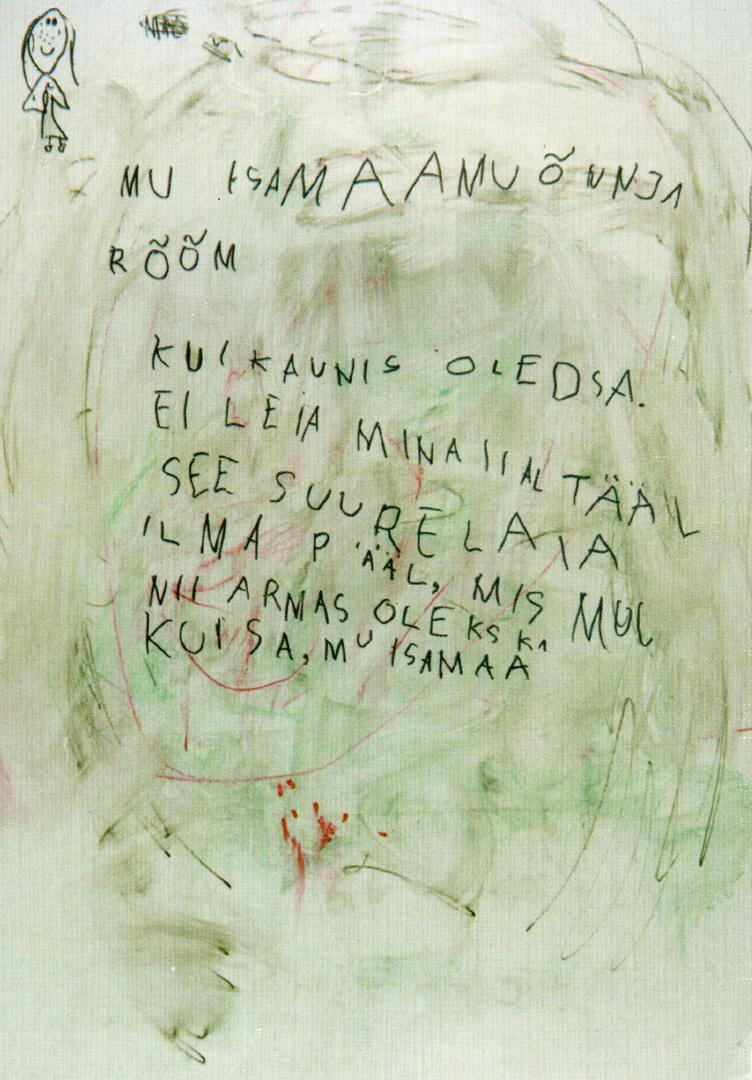 MU ISAMAAMU ÕNNJA
RÕÕM
KUI KAUNIS OLEDSA.
EI LEIA MINA IIAL TÄÄL
SEE SUURE LAIA
ILMA PÄÄL, MIS MUL
NII ARMAS OLEKS KA
KUI SA, MU ISAMAA